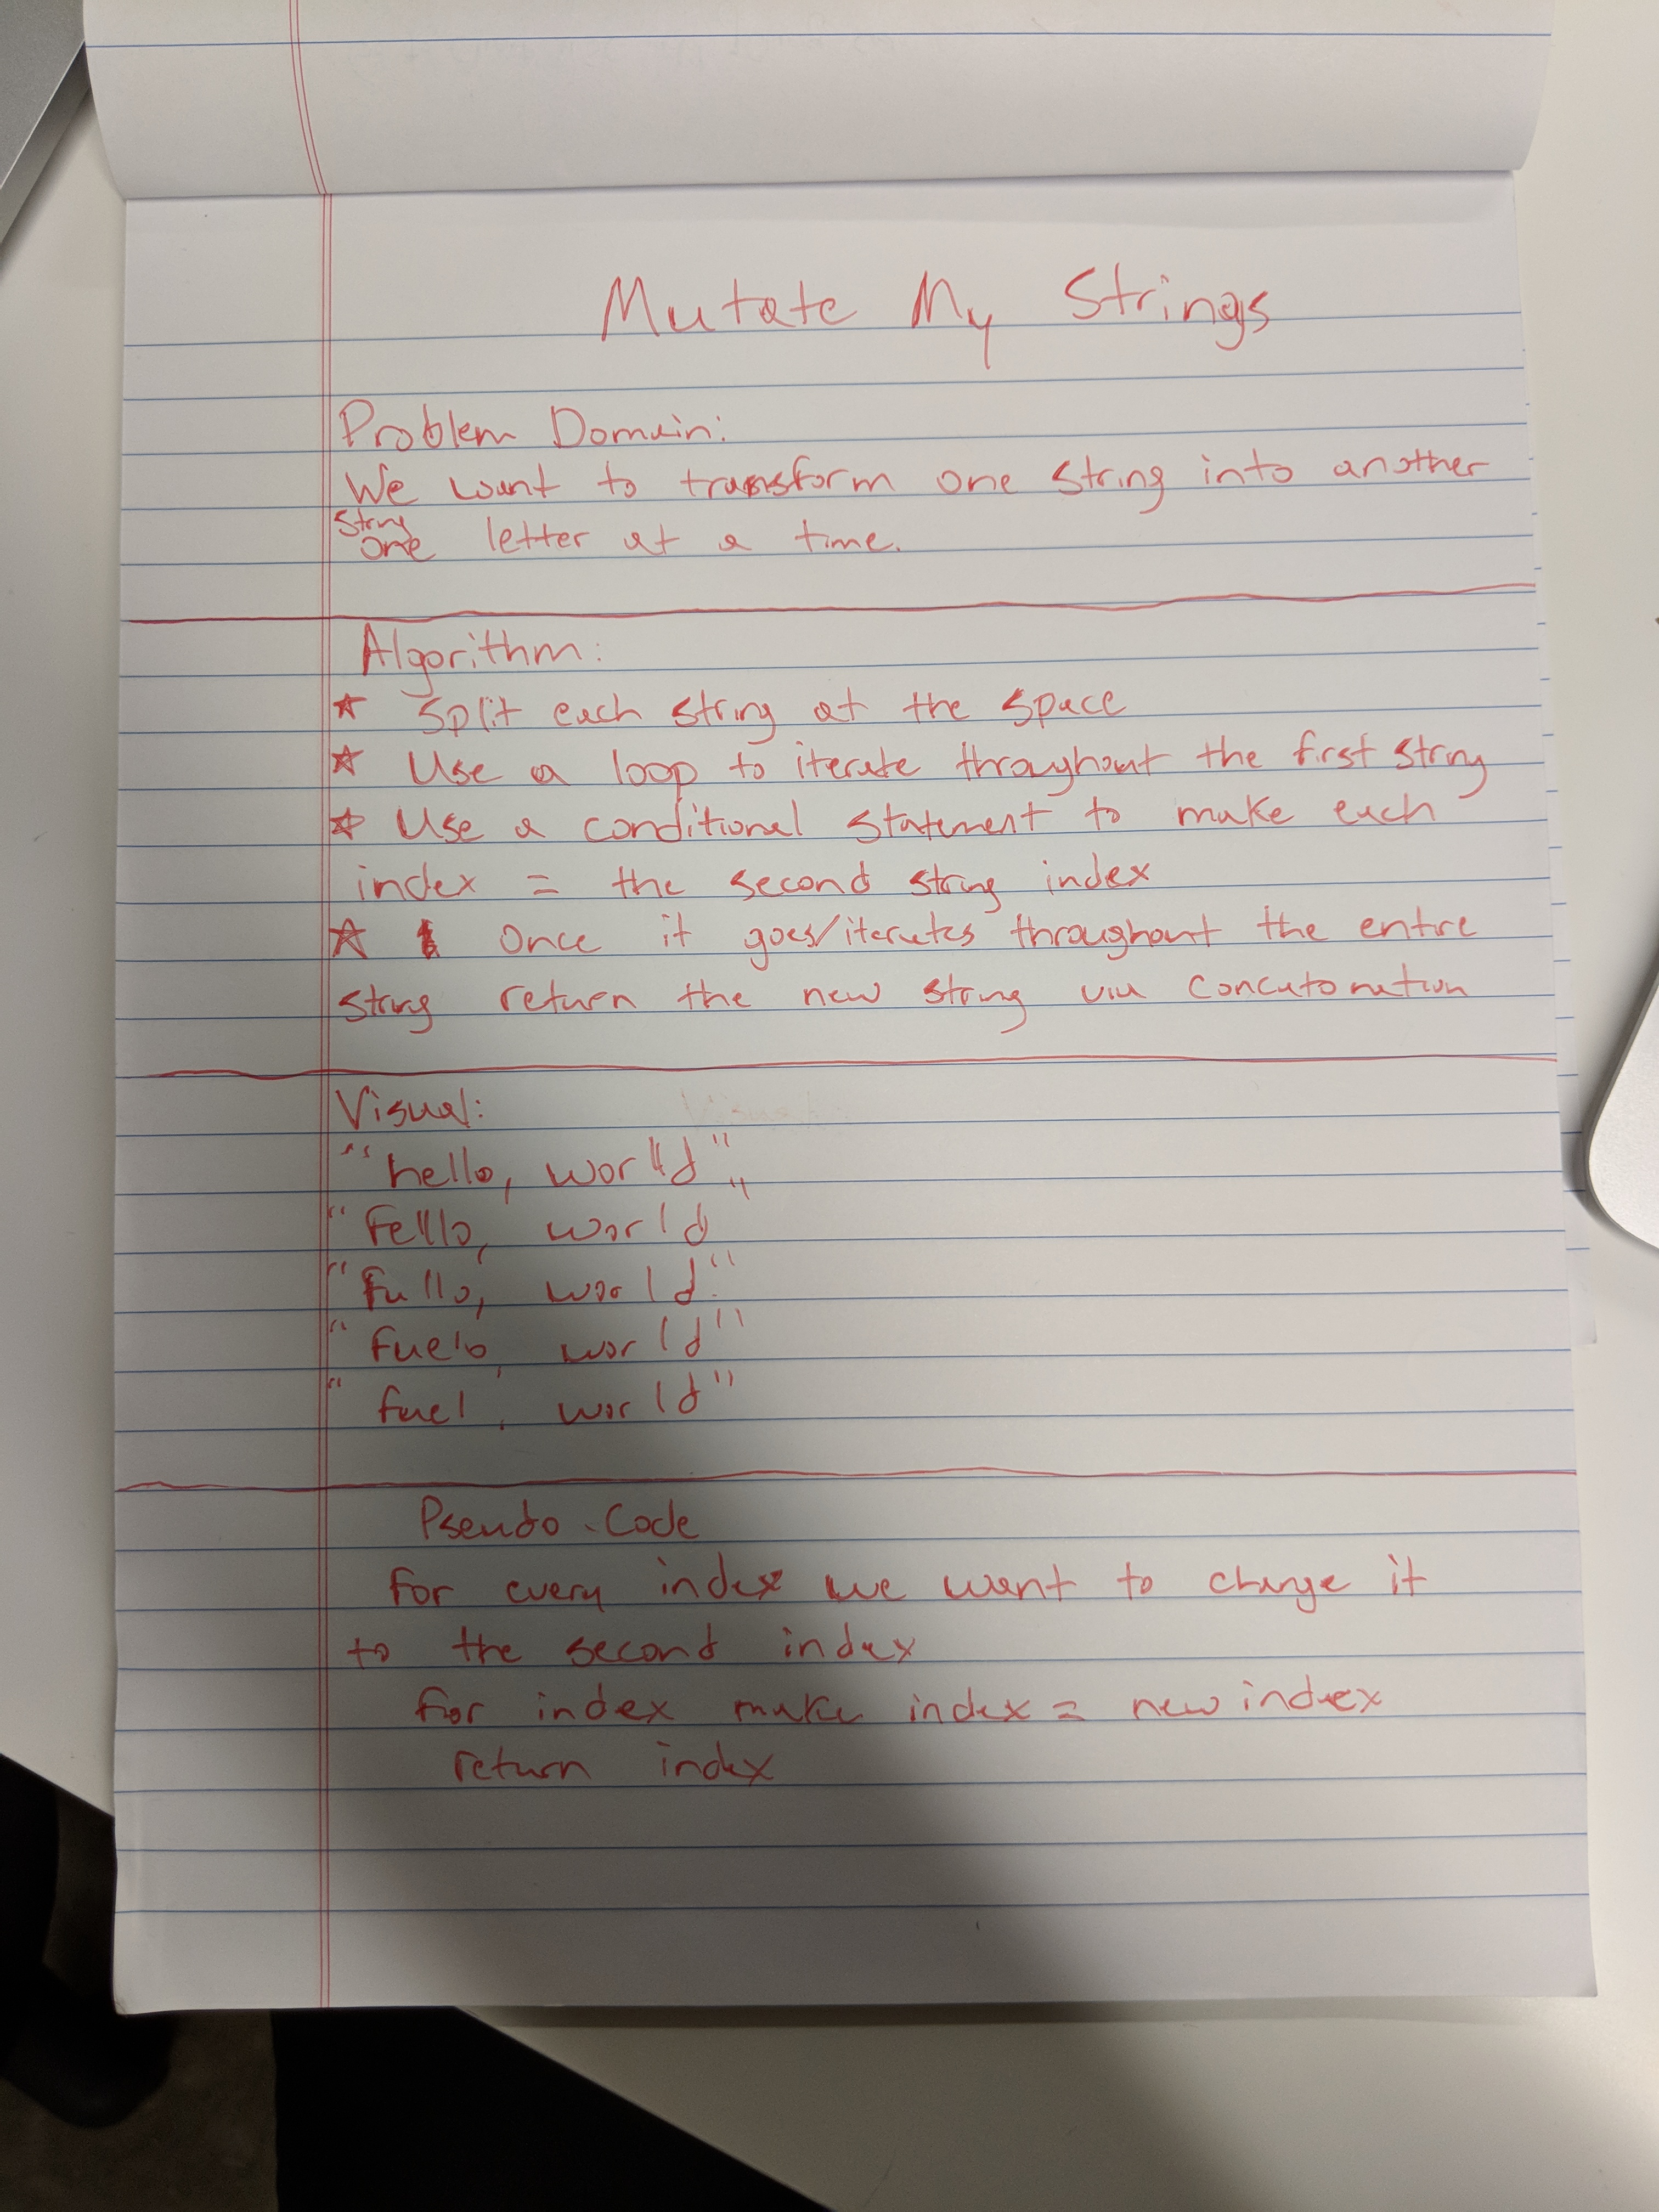 Mutate My Strings
Problem Domain:
We want to transform one string into another
string
one letter at a time.
Algorithm:
* Split each string at the space
* Use a loop to iterate throughout the first string
* Use a conditional statement to make each
index = the second string index
* Once it goes/iterates throughout the entire
string return the new string via concatonation
Visual:
"hello, world"
"fello, world"
"fullo, world"
"fuelo, world"
"fuel, world"
Pseudo-Code
for every index we want to change it
to the second index
for index make index = new index
return index